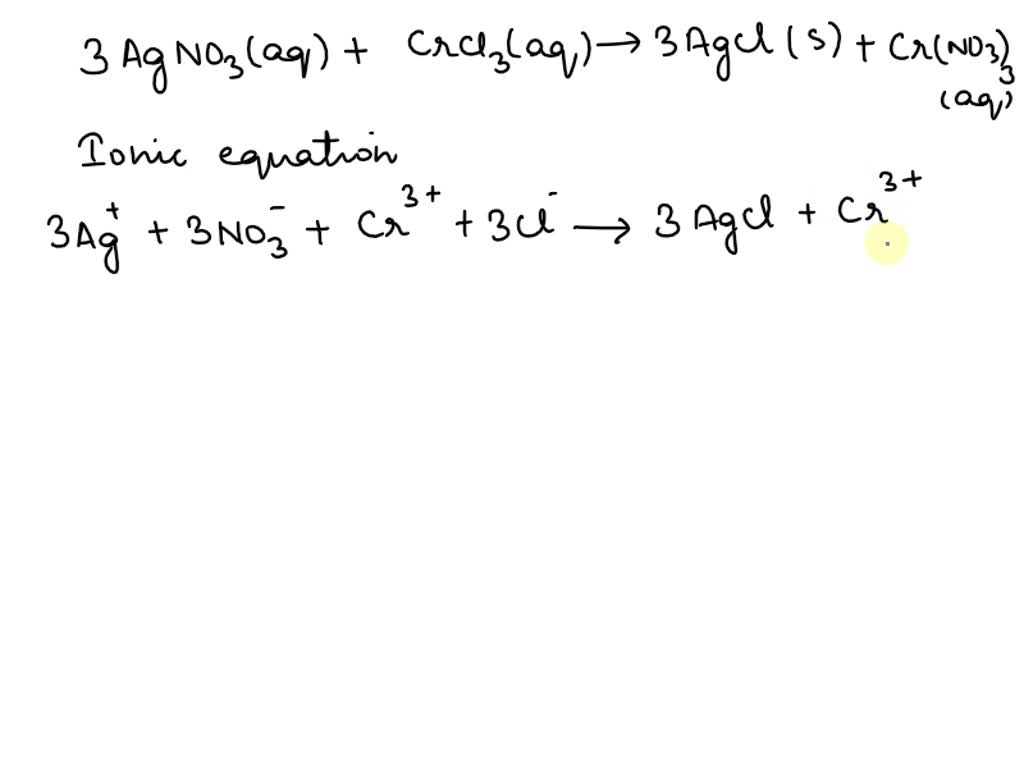 3 AgNO₃(aq) + CrCl₃(aq) → 3 AgCl (s) + Cr(NO₃)₃
(aq)
Ionic equation
3Ag⁺ + 3NO₃⁻ + Cr³⁺ + 3Cl⁻ → 3 AgCl + Cr³⁺